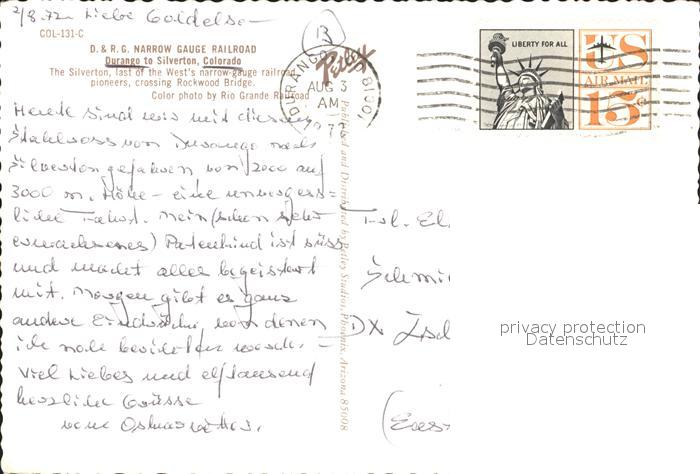 2/8.72. Liebe Goldelse –
COL-131-C
D. & R.G. NARROW GAUGE RAILROAD
Durango to Silverton, Colorado
The Silverton, last of the West's narrow-gauge railroad
pioneers, crossing Rockwood Bridge.
Color photo by Rio Grande Railroad
Heute sind wir mit diesem
Stahlross von Durango nach
Silverton gefahren von 2000 auf
3000 m. Höhe – eine unvergess=
liche Fahrt. Mein (schon sehr
erwachsenes) Patenkind ist süss
und macht alles begeistert
mit. Morgen gibt es ganz
andere Eindrücke von denen
ich noch berichten werde. –
Viel Liebes und elftausend
herzliche Grüsse
vom
B
Petley
DURANGO
AUG 3
AM
1972
81301
Published and Distributed by Petley Studios, Phoenix, Arizona 85008
LIBERTY FOR ALL
US
AIR MAIL
15c
Frl. El
Schmi
DX
privacy protection
Datenschutz